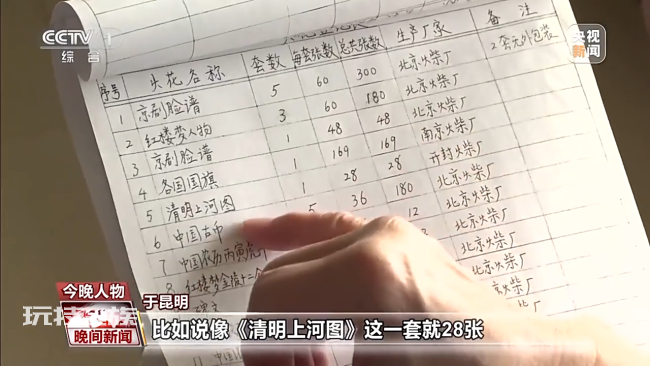 CCTV 1
综合
央视
新闻
序号 火花名称 套数 每套张数 总共张数 生产厂家 备注
1 京剧脸谱 5 60 300 北京火柴厂 2套无外包装
2 红楼梦人物 3 60 180 北京火柴厂
3 京剧脸谱 1 48 48 北京火柴厂
4 各国国旗 1 169 169 南京火柴厂
5 清明上河图 1 28 28 开封火柴厂
6 中国古币 5 36 180 北京火柴厂
7 中国农历丙寅 12 北京火柴厂
8 红楼梦金陵十二 北京火柴厂
北京火柴厂
今晚人物
于昆明
晚间新闻
比如说像《清明上河图》这一套就28张